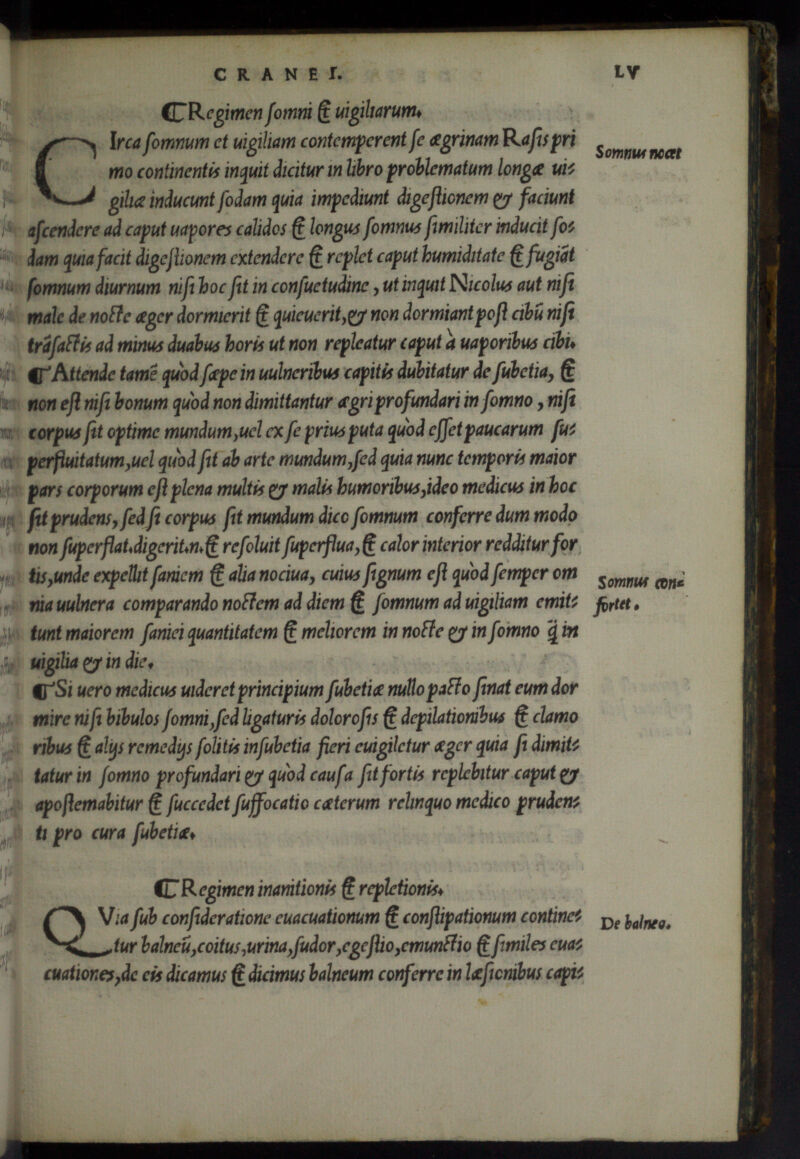 CRANEI.
LV
⸿Regimen somni & uigiliarum.
CIrca somnum et uigiliam contemperent se ægrinam Rasis pri
mo continentis inquit dicitur in libro problematum longæ ui⸗
giliæ inducunt sodam quia impediunt digestionem & faciunt
ascendere ad caput uapores calidos & longus somnus similiter inducit so⸗
dam quia facit digestionem extendere & replet caput humiditate & fugiāt
somnum diurnum nisi hoc sit in consuetudine, ut inquit Nicolus aut nisi
male de nocte æger dormierit & quieuerit, & non dormiant post cibū nisi
trāsactis ad minus duabus horis ut non repleatur caput à uaporibus cibi.
¶Attende tamē quòd sæpe in uulneribus capitis dubitatur de subetia, &
non est nisi bonum quòd non dimittantur ægri profundari in somno, nisi
corpus sit optime mundum, uel ex se prius puta quòd esset paucarum su⸗
perfluitatum, uel quòd sit ab arte mundum, sed quia nunc temporis maior
pars corporum est plena multis & malis humoribus, ideo medicus in hoc
sit prudens, sed si corpus sit mundum dico somnum conferre dum modo
non superflat.digerit.n. & resoluit superflua, & calor interior redditur for
tis, unde expellit saniem & alia nociua, cuius signum est quòd semper om
nia uulnera comparando noctem ad diem & somnum ad uigiliam emit⸗
tunt maiorem saniei quantitatem & meliorem in nocte & in somno q̃ in
uigilia & in die.
¶Si uero medicus uideret principium subetiæ nullo pacto sinat eum dor
mire nisi bibulos somni, sed ligaturis dolorosis & depilationibus & clamo
ribus & alijs remedijs solitis in subetia fieri euigiletur æger quia si dimit⸗
tatur in somno profundari & quòd causa sit fortis replebitur caput &
apostemabitur & succedet suffocatio cæterum relinquo medico pruden⸗
ti pro cura subetiæ.
Somnus nocet
Somnus con⸗
fortet.
⸿Regimen inanitionis & repletionis.
QVia sub consideratione euacuationum & constipationum contine⸗
tur balneū, coitus, urina, sudor, egestio, emunctio & similes eua⸗
cuationes, de eis dicamus & dicimus balneum conferre in læsionibus capi⸗
De balneo.